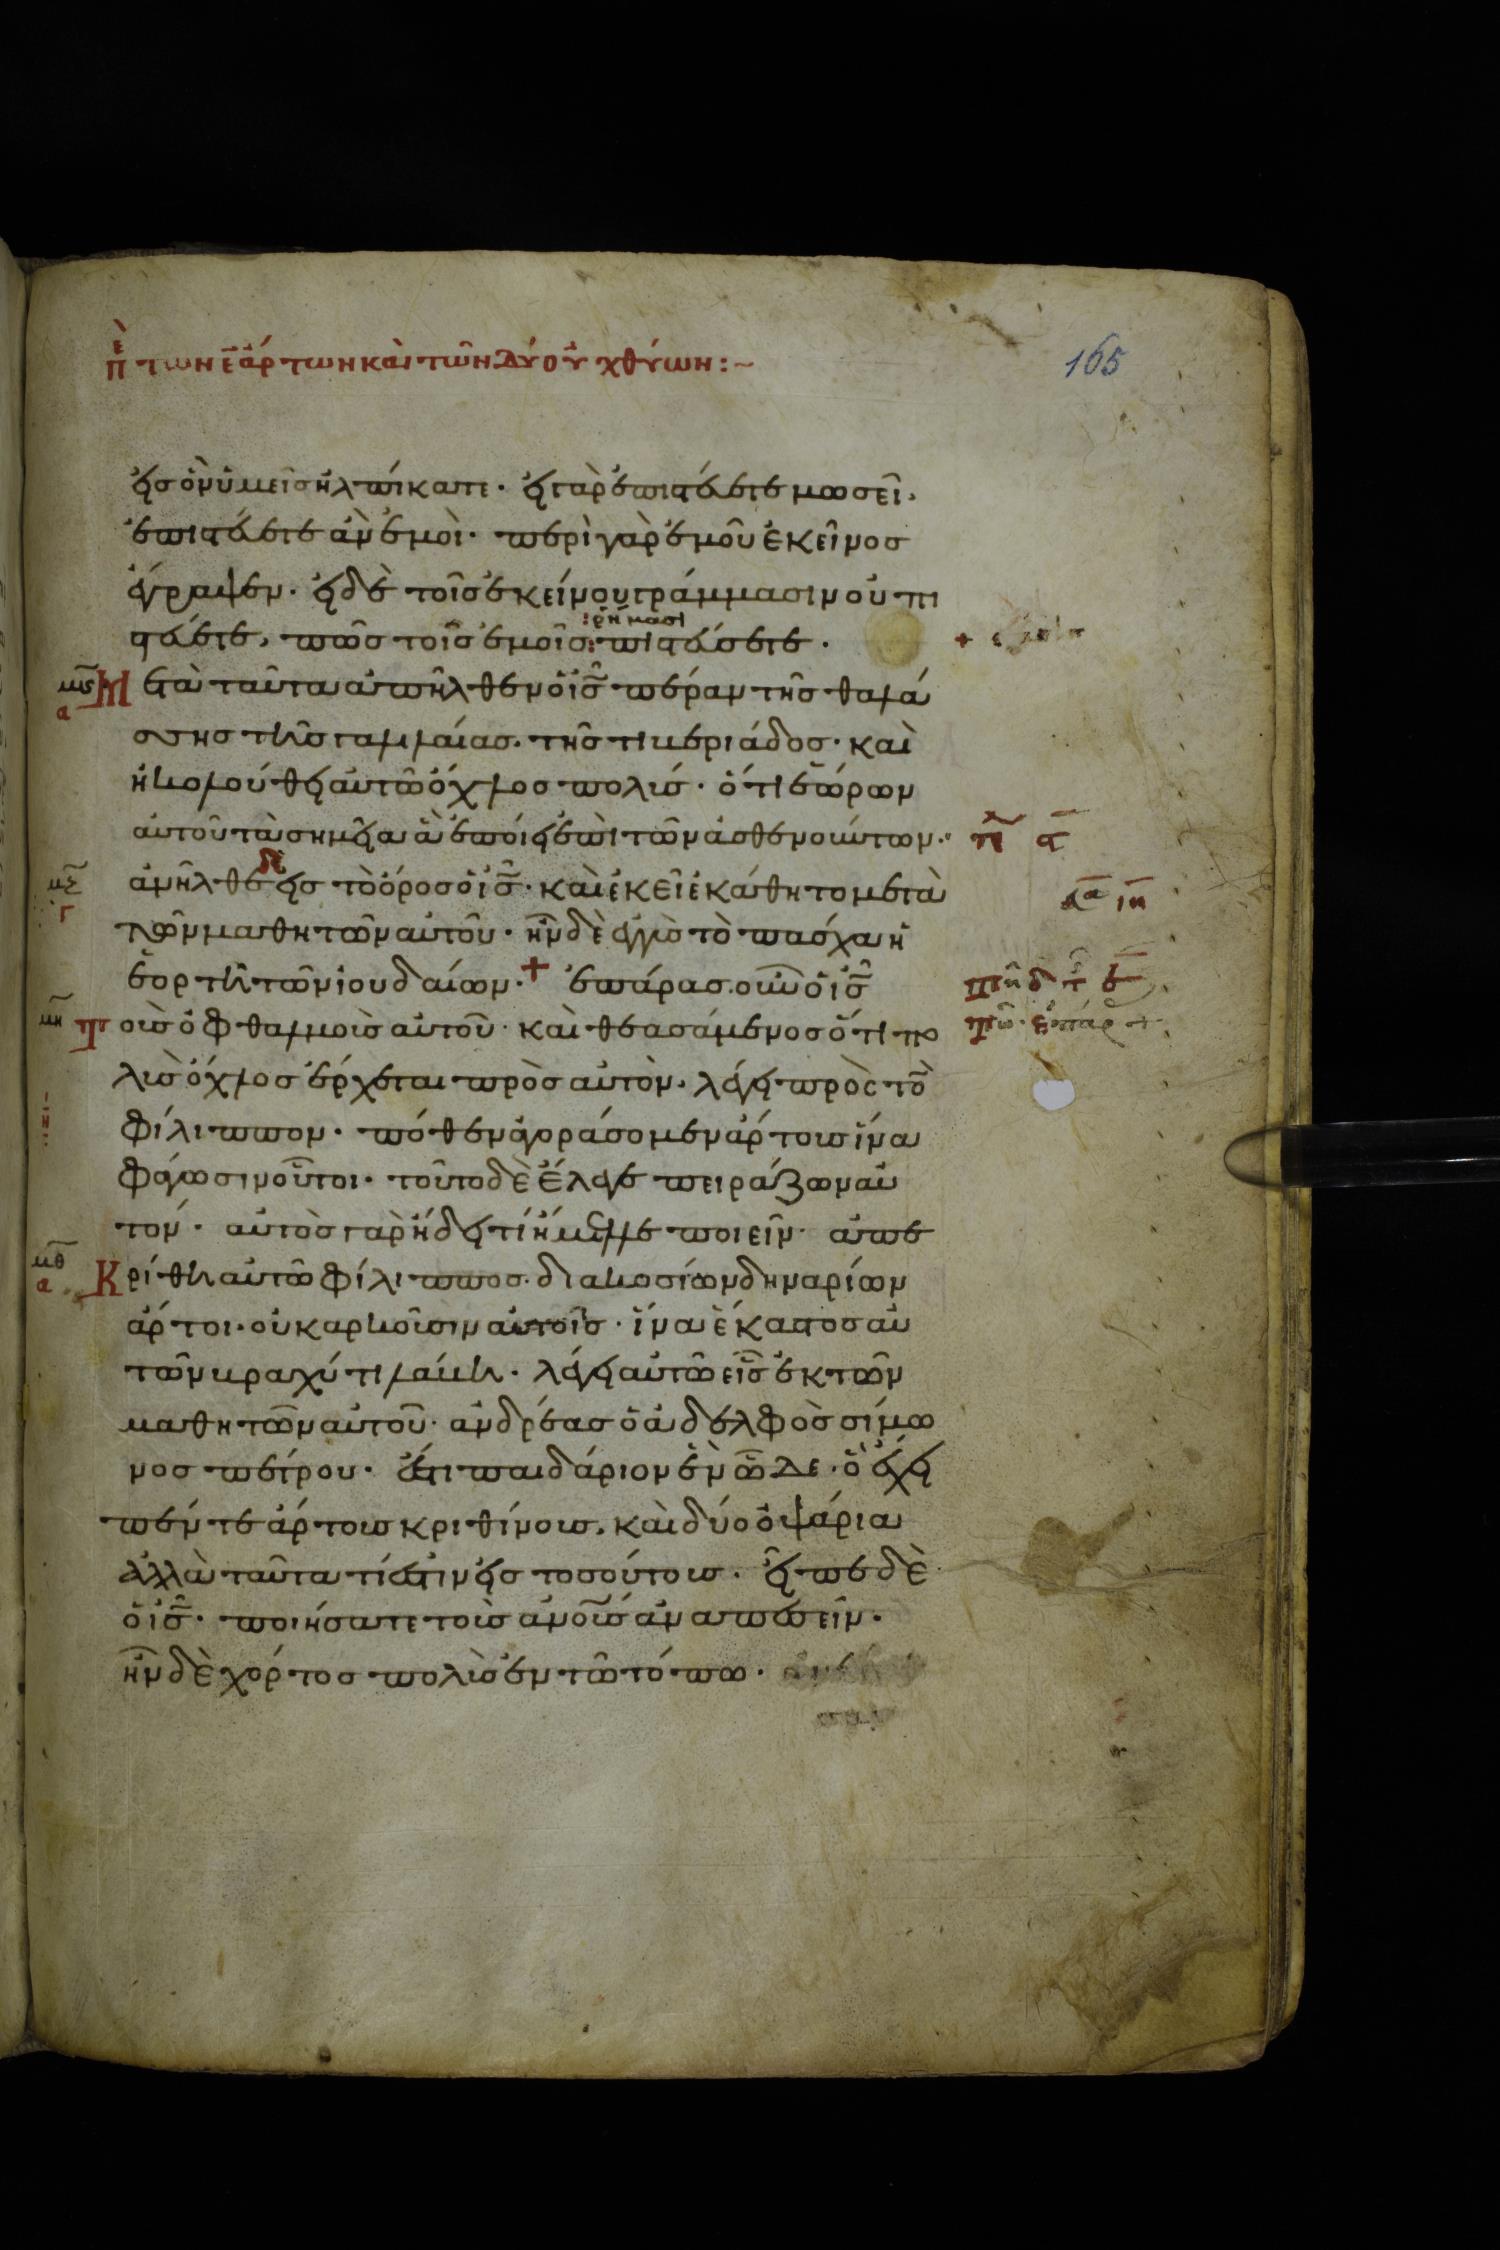 πὲ τῶν ε̄ ἄρτων καὶ τῶν δύο ϊχθύων :~
165
εἰς ὃν ὑμεῖς ἠλπίκατε· εἰ γὰρ ἐπιστεύετε μωσεῖ,
ἐπιστεύετε ἂν ἐμοὶ· περὶ γὰρ ἐμοῦ ἐκεῖνος
ἔγραψεν· εἰ δὲ τοῖς ἐκείνου γράμμασιν οὐ πι
στεύετε, πῶς τοῖς ἐμοῖς :ῥήμασι πιστεύσετε·
μϛ α Μετὰ ταῦτα ἀπῆλθεν ὁ ἰς̄ πέραν τῆς θαλά
σσης τῆς γαλιλαίας· τῆς τιβεριάδος· καὶ
ἠκολούθει αὐτῶ ὄχλος πολύς· ὅτι ἑώρων
αὐτοῦ τὰ σημεῖα ἃ ἐποίει ἐπὶ τῶν ἀσθενούντων·
μζ γ ἀνῆλθε δὲ εἰς τὸ ὄρος ὁ ἰς̄· καὶ ἐκεῖ ἐκάθητο μετὰ
τῶν μαθητῶν αὐτοῦ· ἦν δὲ ἐγγὺς τὸ πάσχα ἡ
ἑορτὴ τῶν ἰουδαίων· + ἐπάρας οὖν ὁ ἰς̄
μη τοὺς ὀφθαλμοὺς αὐτοῦ· καὶ θεασάμενος ὅτι πο
λὺς ὄχλος ἔρχεται πρὸς αὐτὸν· λέγει πρὸς τὸν
φίλιππον· πόθεν ἀγοράσομεν ἄρτους ἵνα
φάγωσιν οὗτοι· τοῦτο δὲ ἔλεγε πειράζων αὐ
τόν· αὐτὸς γὰρ ἤδει τί ἤμελλε ποιεῖν· ἀπε
μθ α Κρίθη αὐτῶ φίλιππος· διακοσίων δηναρίων
ἄρτοι· οὐκ ἀρκοῦσιν αὐτοῖς· ἵνα ἕκαστος αὐ
τῶν βραχύ τι λάβη· λέγει αὐτῶ εἷς ἐκ τῶν
μαθητῶν αὐτοῦ· ἀνδρέας ὁ ἀδελφὸς σίμω
νος πέτρου· ἔστι παιδάριον ἓν ὧδε· ὃ ἔχει
πέντε ἄρτους κριθίνους, καὶ δύο ὀψάρια
ἀλλὰ ταῦτα τί ἐστιν εἰς τοσούτους· εἶπε δὲ
ὁ ἰς̄· ποιήσατε τοὺς ἀνοῦς ἀναπεσεῖν·
ἦν δὲ χόρτος πολὺς ἐν τῶ τόπω·